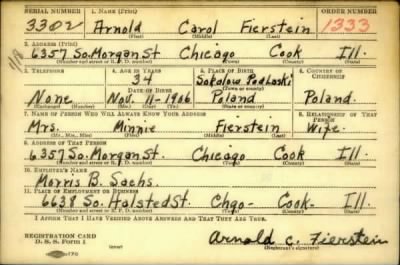 SERIAL NUMBER 1. NAME (Print) ORDER NUMBER
3302 Arnold Carol Fierstein 1333
(First) (Middle) (Last)
2. ADDRESS (Print)
6357 So. Morgan St Chicago Cook Ill.
(Number and street or R. F. D. number) (Town) (County) (State)
3. TELEPHONE 4. AGE IN YEARS 5. PLACE OF BIRTH 6. COUNTRY OF CITIZENSHIP
34 Sokolow Podloski
DATE OF BIRTH (Town or county)
None Nov. 11-1906 Poland Poland.
(Exchange) (Number) (Mo.) (Day) (Yr.) (State or country)
7. NAME OF PERSON WHO WILL ALWAYS KNOW YOUR ADDRESS 8. RELATIONSHIP OF THAT PERSON
Mrs. Minnie Fierstein Wife.
(Mr., Mrs., Miss) (First) (Middle) (Last)
9. ADDRESS OF THAT PERSON
6357 So. Morgan St. Chicago Cook Ill.
(Number and street or R. F. D. number) (Town) (County) (State)
10. EMPLOYER'S NAME
Morris B. Sachs.
11. PLACE OF EMPLOYMENT OR BUSINESS
6638 So. Halsted St. Chgo- Cook- Ill.
(Number and street or R. F. D. number) (Town) (County) (State)
I AFFIRM THAT I HAVE VERIFIED ABOVE ANSWERS AND THAT THEY ARE TRUE.
REGISTRATION CARD
D. S. S. Form 1 Arnold C. Fierstein
(Registrant's signature)